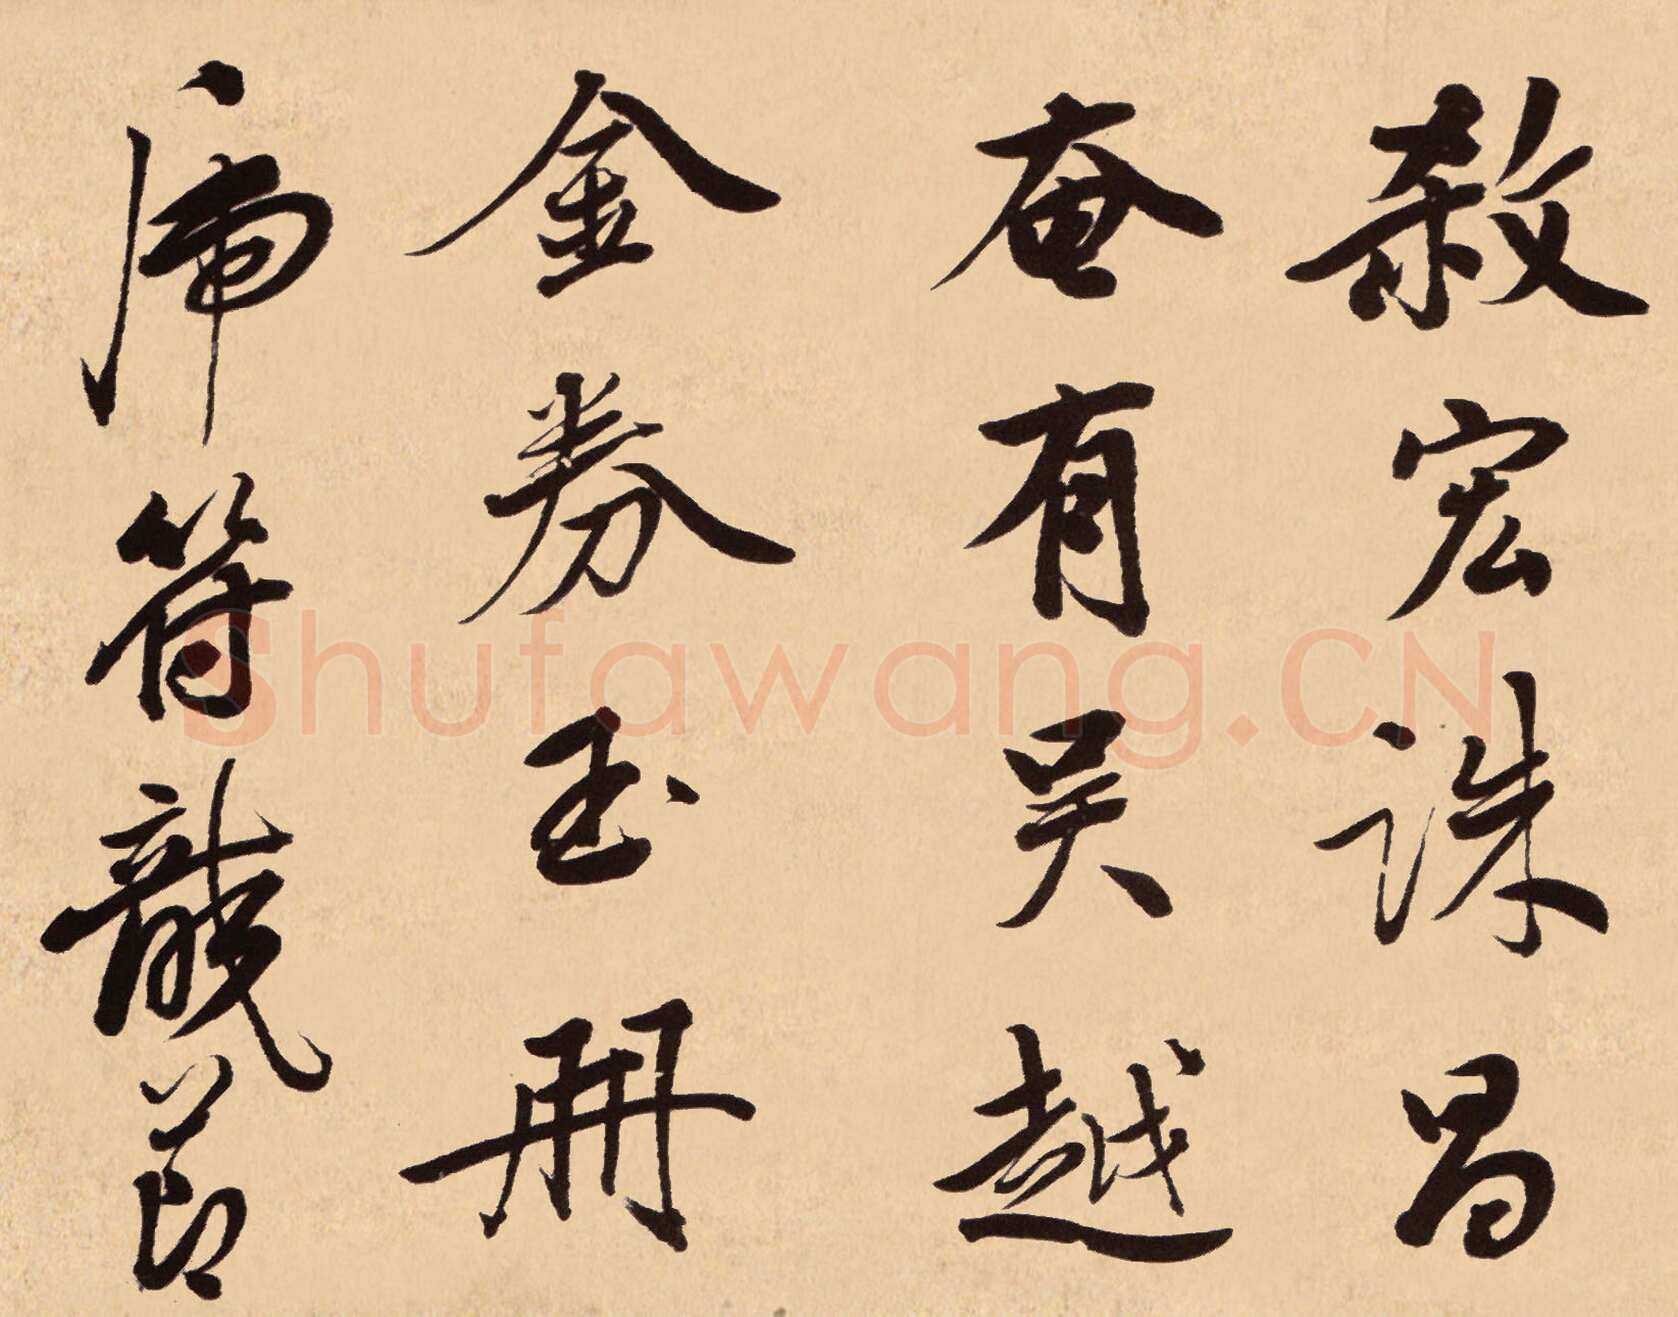 殺宏誅昌
奄有吳越
金券玉冊
虎符龍節
Shufawang.CN